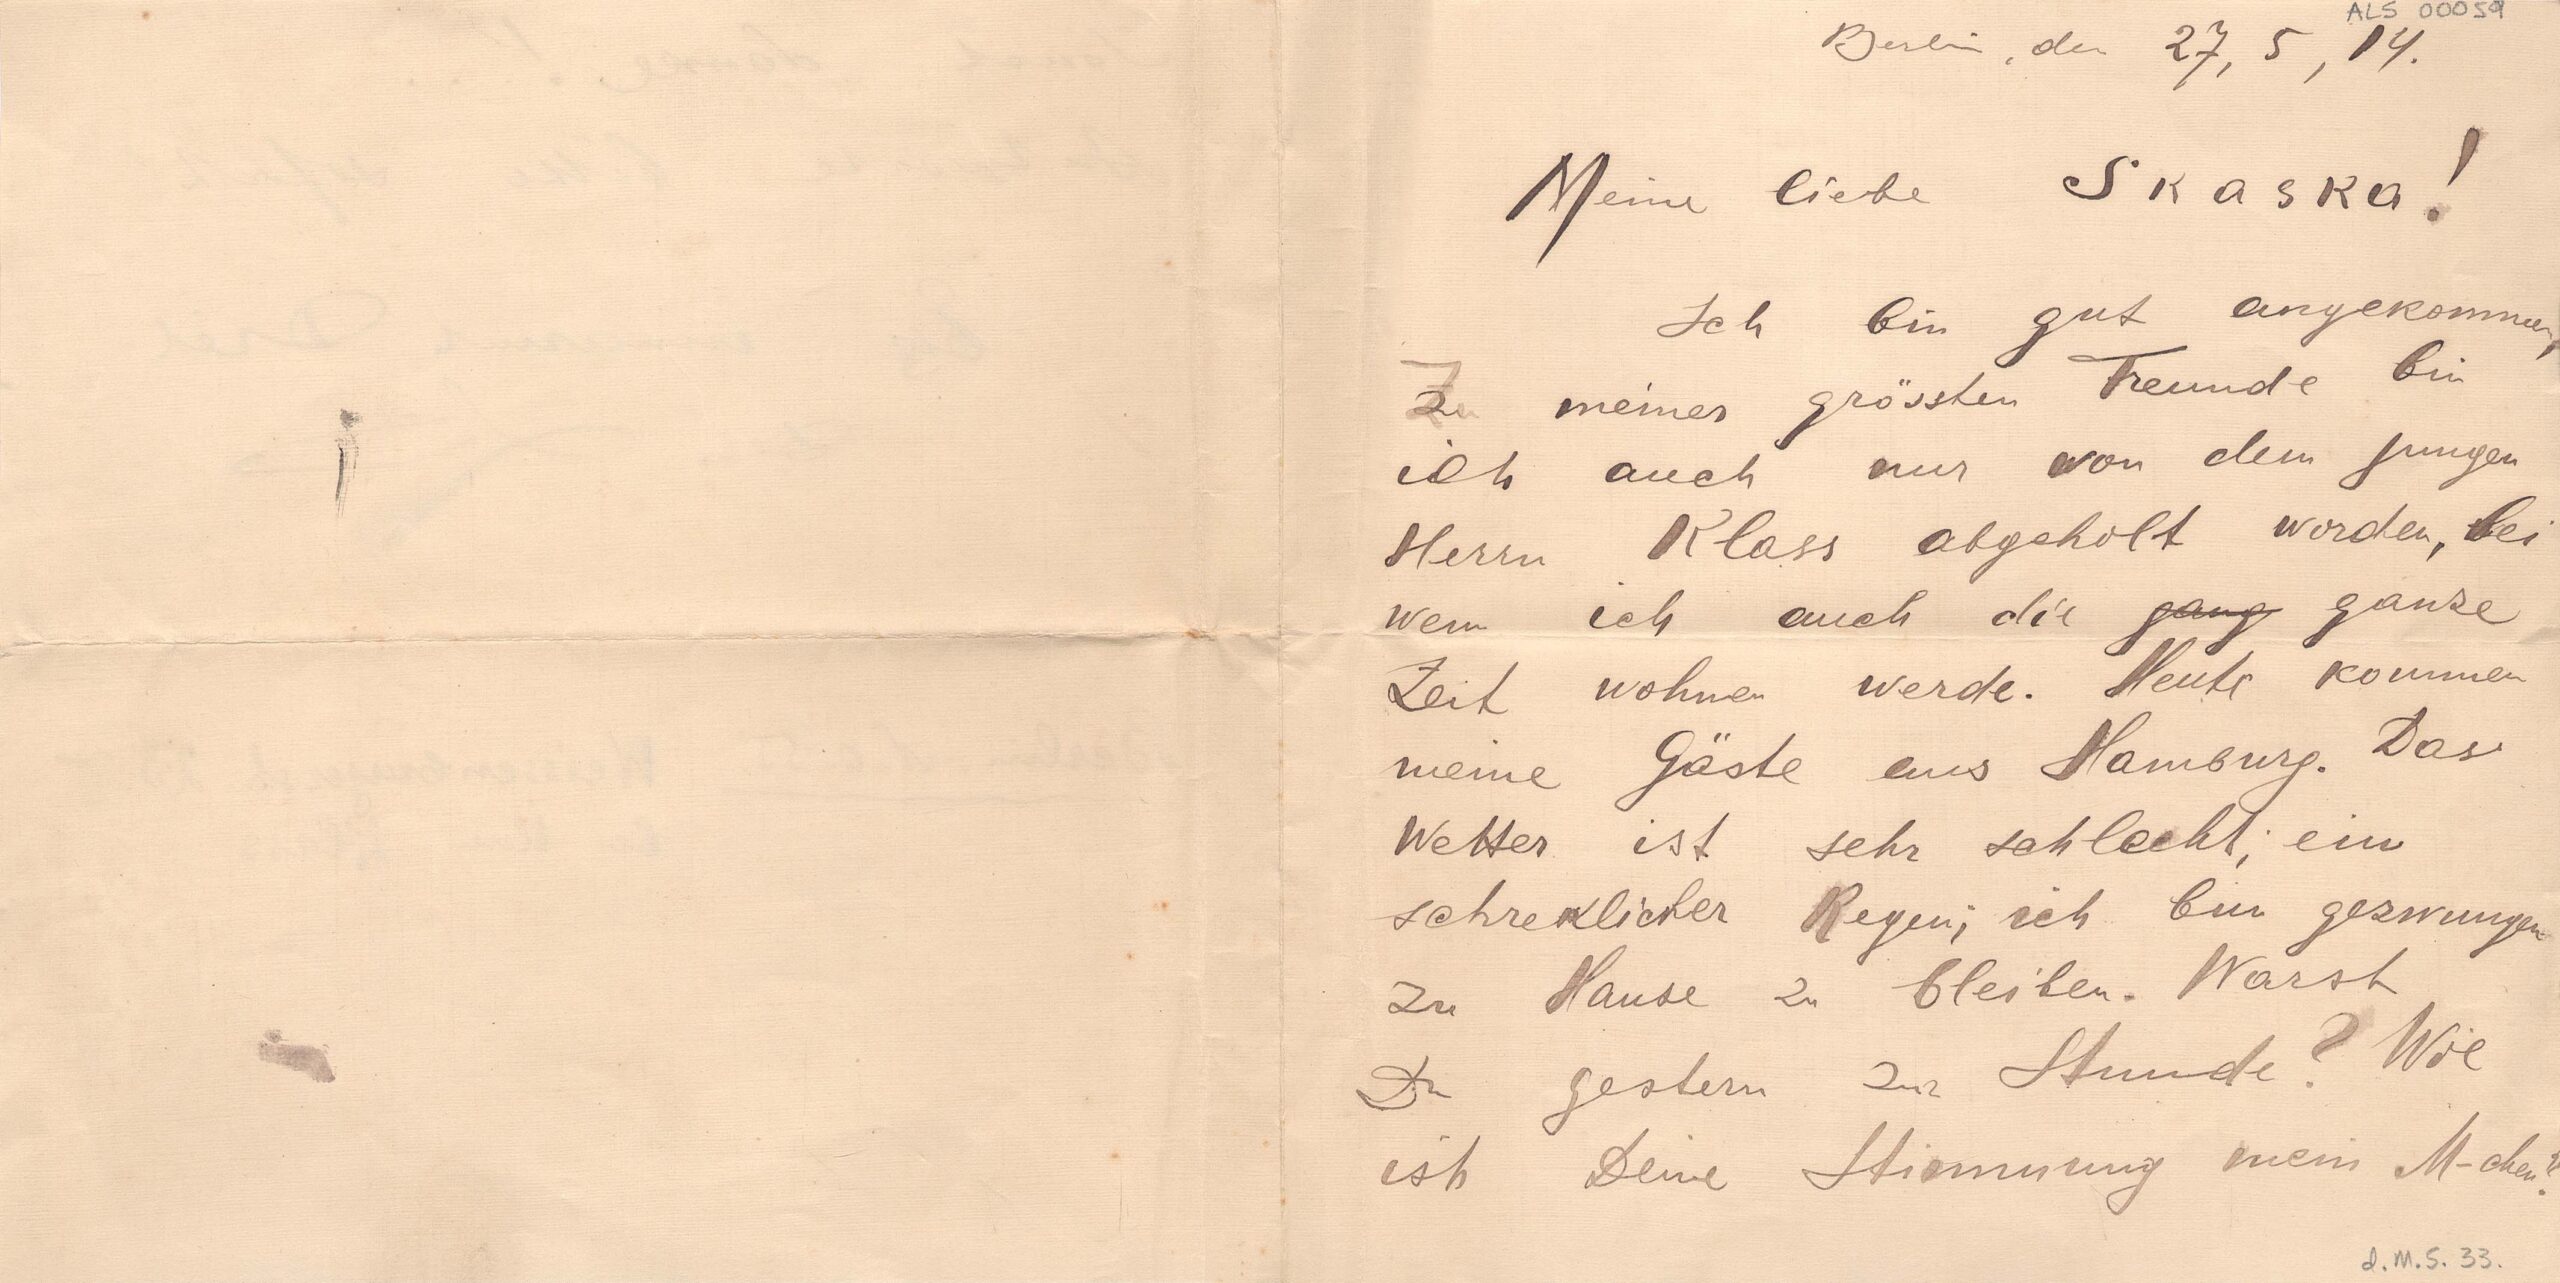 ALS 00059
Berlin, den 27, 5, 14.
Meine liebe Skaska!
Ich bin gut angekommen,
Zu meiner grössten Freunde bin
ich auch nur von dem jungen
Herrn Klass abgeholt worden, bei
wem ich auch die gang ganze
Zeit wohnen werde. Heute kommen
meine Gäste aus Hamburg. Das
Wetter ist sehr schlecht; ein
schreklicher Regen; ich bin gezwungen
zu Hause zu bleiben. Warst
Du gestern zur Stunde? Wie
ist Deine Stimmung mein M-chen?
d.M.S. 33.